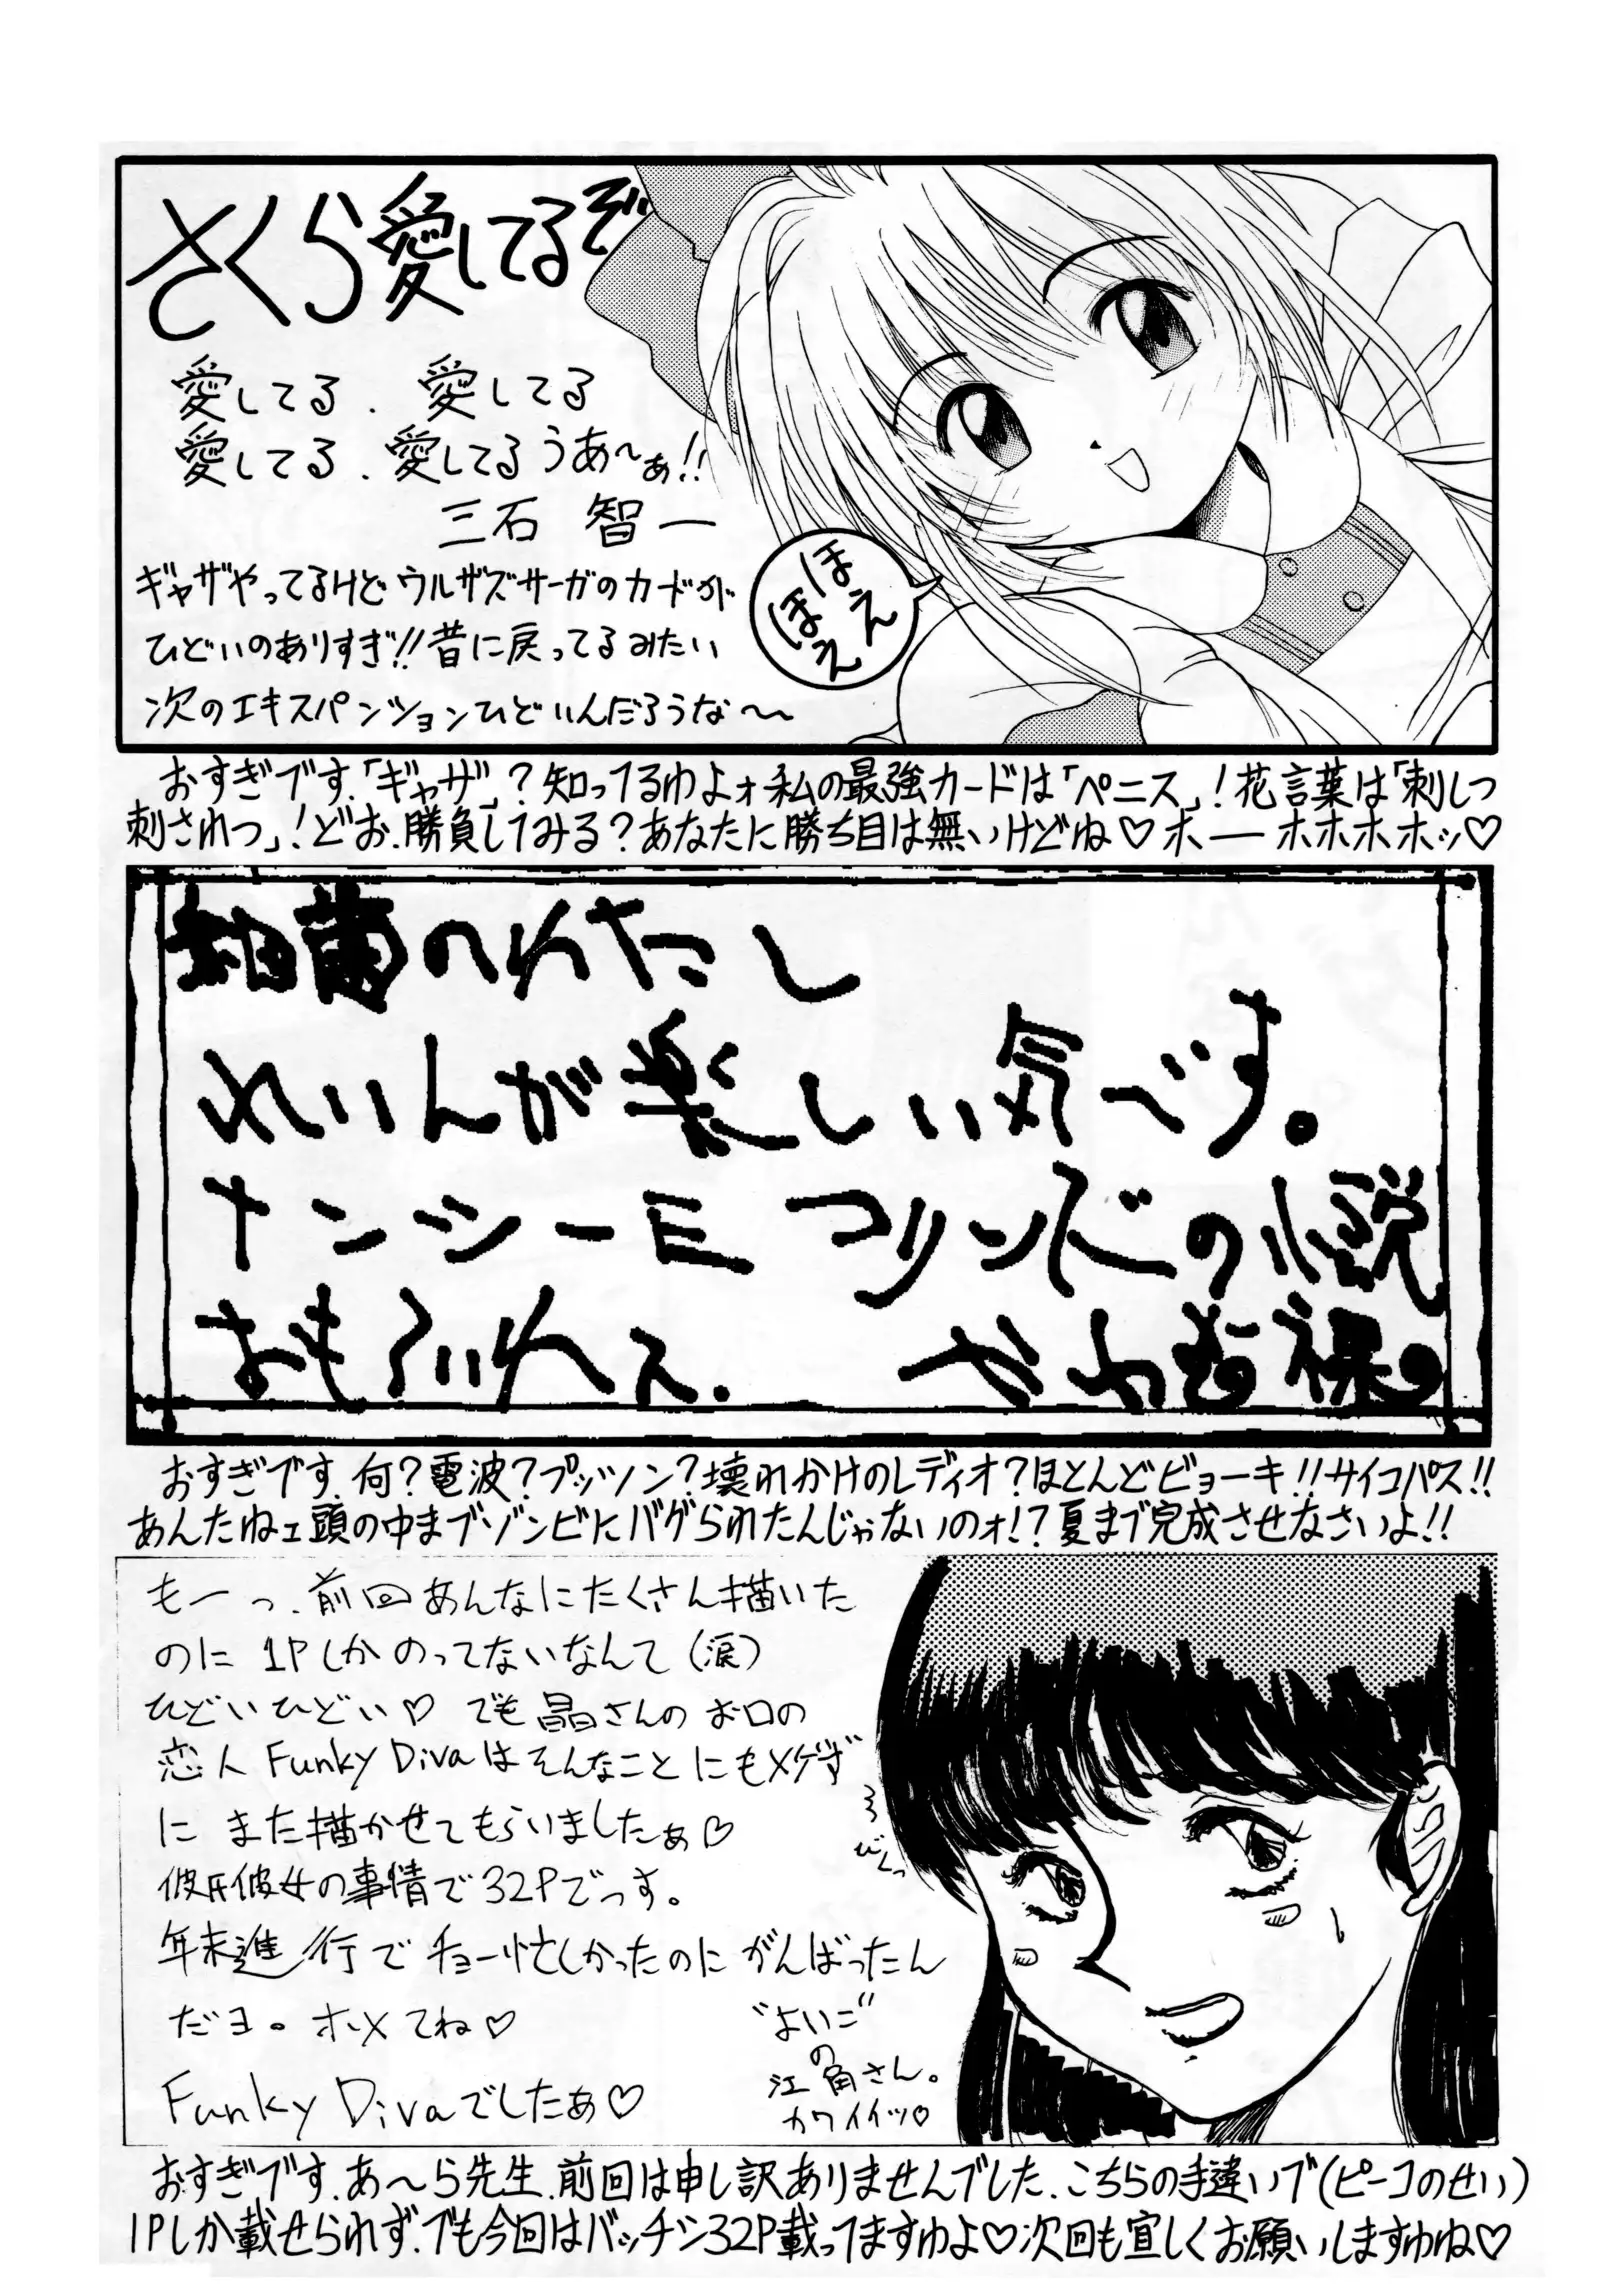 さくら愛してるぞ
愛してる、愛してる
愛してる、愛してるうあ〜ぁ!!
三石 智一
ギャザやってるけどウルザズサーガのカードが
ひどいのありすぎ!!昔に戻ってるみたい
次のエキスパンションひどいんだろうな〜〜
ほえ
ほえ
おすぎです、「ギャザ」?知ってるわよォ私の最強カードは「ペニス」!花言葉は「刺しつ
刺されつ」!どお、勝負してみる?あなたに勝ち目は無いけどね♡ホーーホホホホッ♡
細菌のわたし
れいんが楽しい気です。
ナンシーEコリンズの小説
おもろいわえ.
おすぎです、何?電波?プッツン?壊れかけのレディオ?ほとんどビョーキ!!サイコパス!!
あんたねェ頭の中までゾンビにバゲられたんじゃないのォ!?夏まで完成させなさいよ!!
もーっ、前回あんなにたくさん描いた
のに 1Pしかのってないなんて(涙)
ひどいひどい♡ でも晶さんのお口の
恋人 Funky Divaはそんなことにもメゲず
に また描かせてもらいましたぁ♡
彼氏彼女の事情で32Pでっす。
年末進行でチョー忙しかったのに がんばったん
だヨ。ホメてね♡
Funky Divaでしたぁ♡
びくっ
"よいこ"
の
江角さん。
カワイイッ♡
おすぎです、あ〜ら先生、前回は申し訳ありませんでした、こちらの手違いで(ピーコのせい)
1Pしか載せられず、でも今回はバッチシ32P載ってますわよ♡次回も宜しくお願いしますわね♡